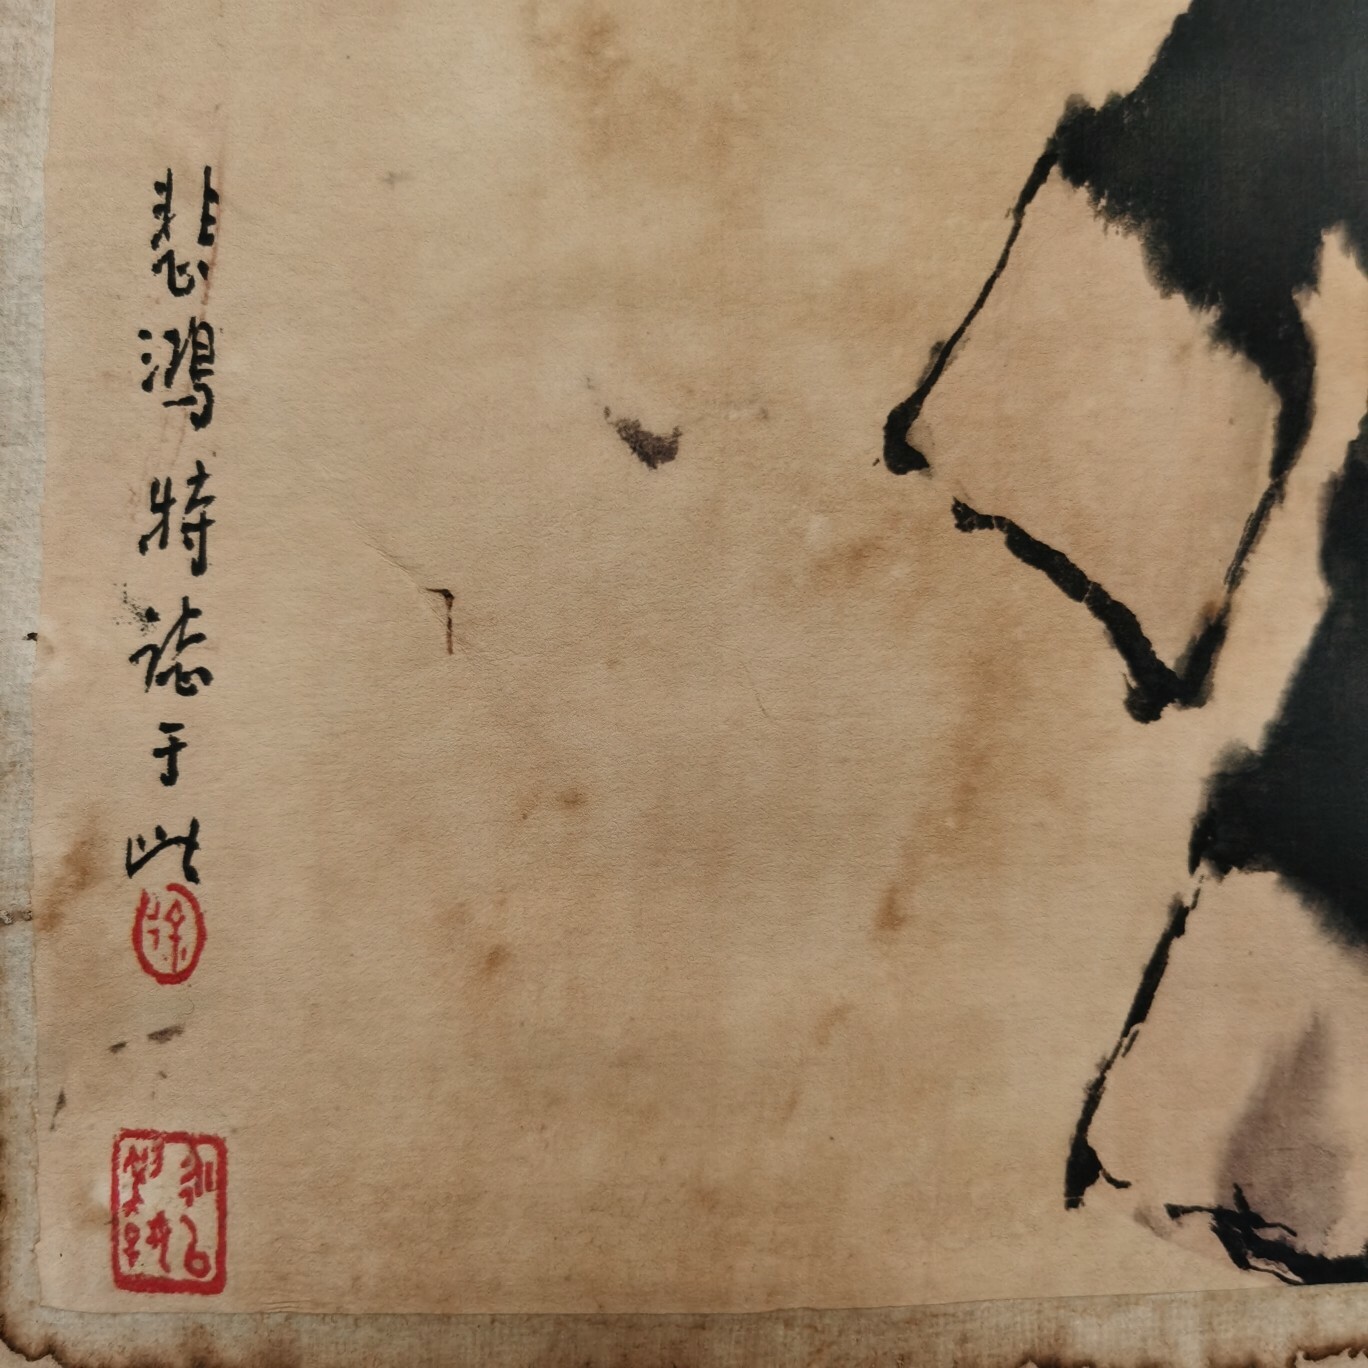 悲鴻特誌于此
徐